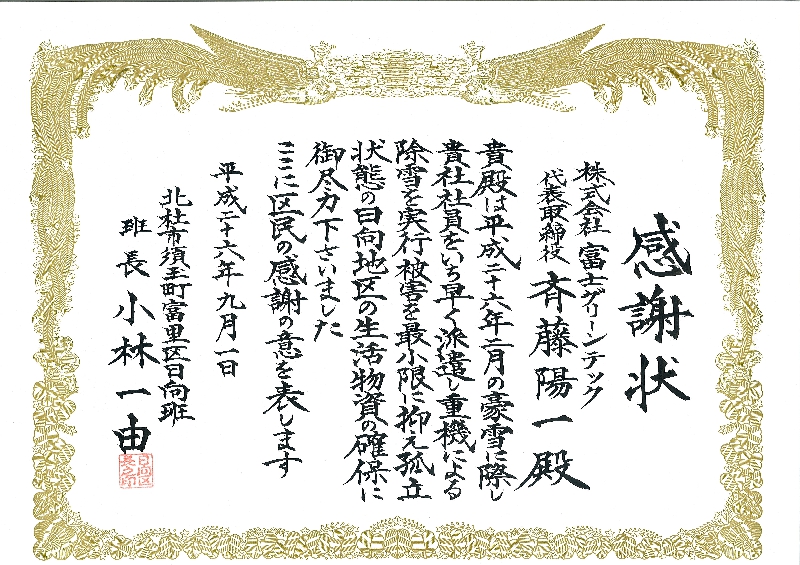 感謝状
株式会社 富士グリーンテック
代表取締役 斉藤陽一殿
貴殿は平成二十六年二月の豪雪に際し
貴社社員をいち早く派遣し重機による
除雪を実行被害を最小限に抑え孤立
状態の日向地区の生活物資の確保に
御尽力下さいました
ここに区民の感謝の意を表します
平成二十六年九月一日
北杜市須玉町富里区日向班
班長 小林一由